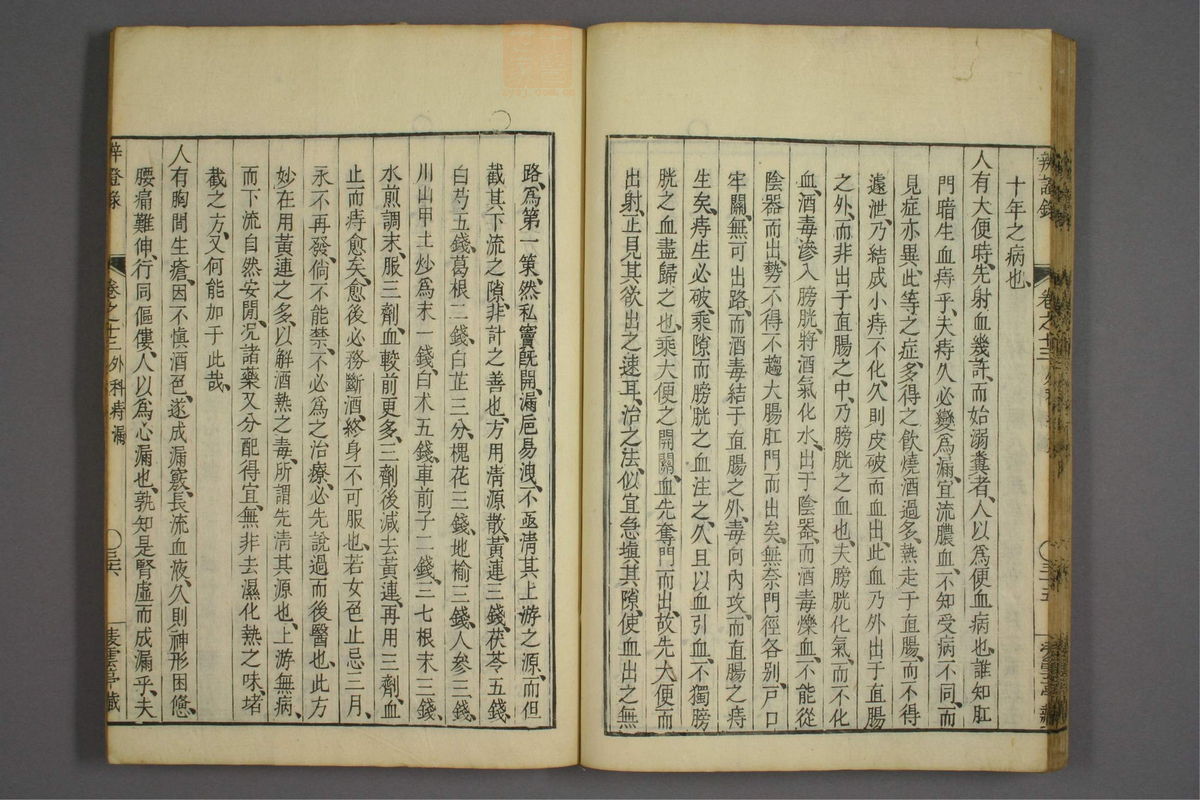 十年之病也、
人有大便時、先射血幾許、而始溺糞者、人以爲便血病也、誰知肛
門暗生血痔乎、夫痔久必變爲漏、宜流膿血、不知受病不同、而
見症亦異、此等之症、多得之飮燒酒過多、熱走于直腸、而不得
遽泄、乃結成小痔不化、久則皮破而血出、此血乃外出于直腸
之外、而非出于直腸之中、乃膀胱之血也、夫膀胱化氣、而不化
血、酒毒滲入膀胱、將酒氣化水、出于陰器、而酒毒爍血、不能從
陰器而出、勢不得不趨大腸肛門而出矣、無奈門徑各別、戸口
牢關、無可出路、而酒毒結于直腸之外、毒向內攻、而直腸之痔
生矣、痔生必破、乘隙而膀胱之血注之、久且以血引血、不獨膀
胱之血盡歸之也、乘大便之開關、血先奪門而出、故先大便而
出射、正見其欲出之速耳、治之法、似宜急塡其隙、使血出之無
路、爲第一策、然私竇旣開、漏巵易洩、不亟清其上游之源、而但
截其下流之隙、非計之善也、方用清源散、黃連三錢、茯苓五錢、
白芍五錢、葛根二錢、白芷三分、槐花三錢、地榆三錢、人參三錢、
川山甲土炒爲末一錢、白朮五錢、車前子二錢、三七根末三錢、
水煎調末、服三劑、血較前更多、三劑後減去黃連、再用三劑、血
止而痔愈矣、愈後必務斷酒、終身不可服也、若女色止忌三月、
永不再發、倘不能禁、不必爲之治療、必先說過而後醫也、此方
妙在用黃連之多、以解酒熱之毒、所謂先清其源也、上游無病、
而下流自然安閒、況諸藥又分配得宜、無非去濕化熱之味、堵
截之方、又何能加于此哉、
人有胸間生瘡、因不愼酒色、遂成漏竅、長流血液、久則神形困憊、
腰痛難伸、行同傴僂、人以爲心漏也、孰知是腎虛而成漏乎、夫
辨證錄 卷之十三 外科痔漏 三六 凌雲亭藏